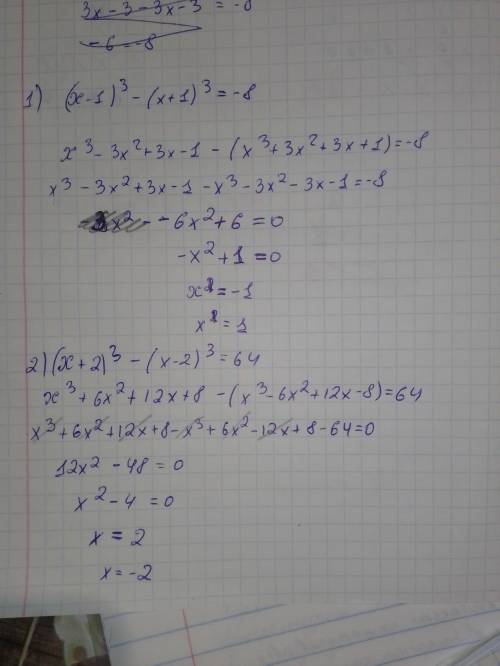 3x - 3 - 3x - 3 = -8
-6 = -8
1) (x-1)³ - (x+1)³ = -8
x³ - 3x² + 3x - 1 - (x³ + 3x² + 3x + 1) = -8
x³ - 3x² + 3x - 1 - x³ - 3x² - 3x - 1 = -8
- 6x² + 6 = 0
-x² + 1 = 0
x = -1
x = 1
2) (x+2)³ - (x-2)³ = 64
x³ + 6x² + 12x + 8 - (x³ - 6x² + 12x - 8) = 64
x³ + 6x² + 12x + 8 - x³ + 6x² - 12x + 8 - 64 = 0
12x² - 48 = 0
x² - 4 = 0
x = 2
x = -2